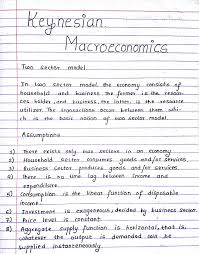 Keynesian
Macroeconomics
Two sector model
In two sector model the economy consists of
household and business the former is the resour-
ces holder and business, the latter is the resource
utilizer. The transactions occur between them whi-
ch is the basic notion of two sector model.
Assumptions
1) There exists only two sectors in an economy.
2) Household sector consumes goods and/or services.
3) Business sector produces goods and/or services.
4) There is no time lag between income and
expenditure.
5) Consumption is the linear function of disposable
income.
6) Investment is exogenous, decided by business sector.
7) Price level is constant.
8) Aggregate supply function is horizontal, that is,
whatever the output is demanded will be
supplied instantaneously.